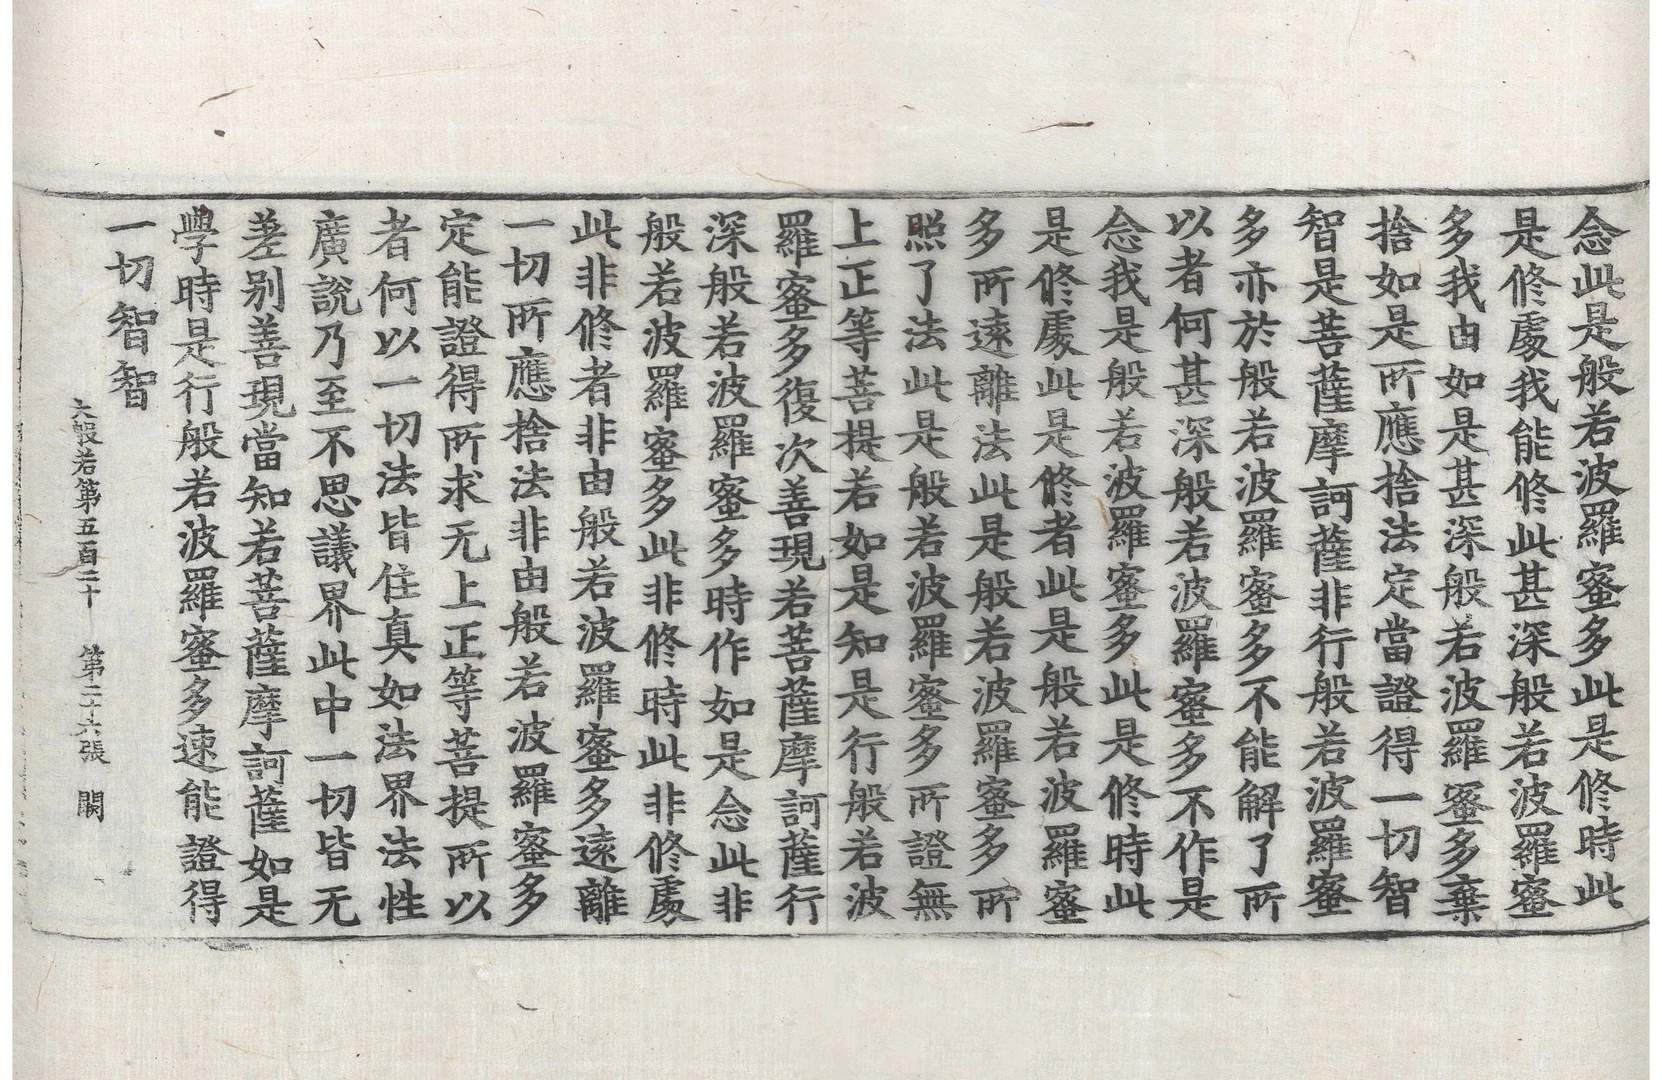 念此是般若波羅蜜多此是修時此
是修處我能修此甚深般若波羅蜜
多我由如是甚深般若波羅蜜多棄
捨如是所應捨法定當證得一切智
智是菩薩摩訶薩非行般若波羅蜜
多亦於般若波羅蜜多不能解了所
以者何甚深般若波羅蜜多不作是
念我是般若波羅蜜多此是修時此
是修處此是修者此是般若波羅蜜
多所遠離法此是般若波羅蜜多所
照了法此是般若波羅蜜多所證無
上正等菩提若如是知是行般若波
羅蜜多復次善現若菩薩摩訶薩行
深般若波羅蜜多時作如是念此非
般若波羅蜜多此非修時此非修處
此非修者非由般若波羅蜜多遠離
一切所應捨法非由般若波羅蜜多
定能證得所求无上正等菩提所以
者何以一切法皆住真如法界法性
廣說乃至不思議界此中一切皆无
差别善現當知若菩薩摩訶薩如是
學時是行般若波羅蜜多速能證得
一切智智
大般若第五百二十 第二十六張 闕